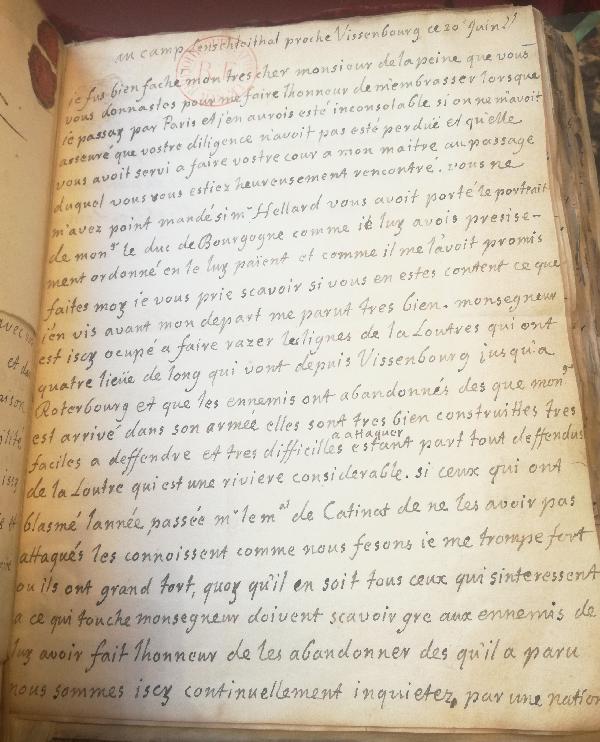 au camp Lenschleithal proche Vissenbourg ce 20e juin
B.F.
je fus bien fache mon tres cher monsieur de la peine que vous
vous donnastes pour me faire lhonneur de m'embrasser lorsque
ie passay par Paris et j'en aurois esté inconsolable si on ne m'avoit
asseuré que vostre diligence n'avoit pas esté perduë et qu'elle
vous avoit servi a faire vostre cour a mon maitre au passage
duquel vous vous estiez heureusement rencontré. vous ne
m'avez point mandé si mr Hellard vous avoit porté le portrait
de monsr le duc de Bourgogne comme ie luy avois presise-
ment ordonné en le luy païent et comme il me l'avoit promis
faites moy ie vous prie scavoir si vous en estes content ce que
j'en vis avant mon depart me parut tres bien. monsegneur
est iscy ocupé a faire razer les lignes de la Loutres qui ont
quatre lieüe de long qui vont depuis Vissenbourg jusqu'a
Roterbourg et que les ennemis ont abandonnés des que monsr
est arrivé dans son armée elles sont tres bien construittes tres
faciles a deffendre et tres difficilles a attaquer estant part tout deffendus
de la Loutre qui est une riviere considerable. si ceux qui ont
blasmé lannée passée mr le mal de Catinat de ne les avoir pas
attaqués les connoissent comme nous fesons ie me trompe fort
ou ils ont grand tort, quoy qu'il en soit tous ceux qui sinteressent
a ce qui touche monsegneur doivent scavoir gre aux ennemis de
luy avoir fait lhonneur de les abandonner des qu'il a paru
nous sommes iscy continuellement inquietez, par une nation